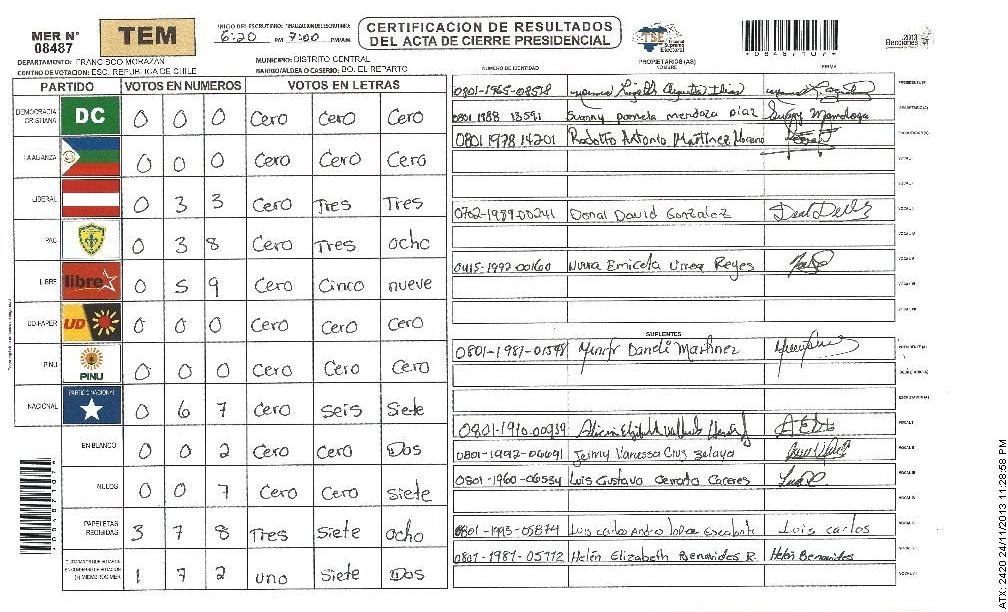 MER N° 08487
TEM
INICIO DEL ESCRUTINIO: 6:20 PM FINALIZACION DEL ESCRUTINIO: 7:00 PM/AM
CERTIFICACION DE RESULTADOS
DEL ACTA DE CIERRE PRESIDENCIAL
TSE Tribunal Supremo Electoral
08487107
2013 Elecciones
DEPARTAMENTO: FRANCISCO MORAZAN
MUNICIPIO: DISTRITO CENTRAL
CENTRO DE VOTACION: ESC. REPUBLICA DE CHILE
BARRIO/ALDEA O CASERIO: BO. EL REPARTO
NUMERO DE IDENTIDAD PROPIETARIOS (AS) NOMBRE FIRMA
PARTIDO VOTOS EN NUMEROS VOTOS EN LETRAS
DEMOCRACIA CRISTIANA DC 0 0 0 Cero Cero Cero
LA ALIANZA 0 0 0 Cero Cero Cero
LIBERAL 0 3 3 Cero Tres Tres
PAC 0 3 8 Cero Tres ocho
LIBRE libre 0 5 9 Cero Cinco nueve
UD-FAPER UD 0 0 0 Cero Cero Cero
PINU PINU 0 0 0 Cero Cero Cero
NACIONAL PARTIDO NACIONAL 0 6 7 Cero seis Siete
EN BLANCO 0 0 2 Cero Cero Dos
NULOS 0 0 7 Cero Cero siete
PAPELETAS RECIBIDAS 3 7 8 Tres Siete ocho
1 7 2 uno Siete Dos
0801-1965-08578
0801 1988 13591 Sunny pamela mendoza Diaz
0801 1978 14201 Rodolfo Antonio Martinez Moreno
0702-1989-00241 Donal David Gonzalez
0415-1992-00160 Emicela Urrea Reyes
SUPLENTES
0801-1981-01598 Daneli Martinez
0801-1910-00939
0801-1992-06691 Jeimy Vanessa Cruz Zelaya
0801-1960-06534 Luis Gustavo Cerrato Caceres
0801-1993-05874 Luis carlos Luis carlos
0801-1981-05772 Helén Elizabeth Benavides R. Helén Benavides
ATX: 2420 24/11/2013 11:28:58 PM